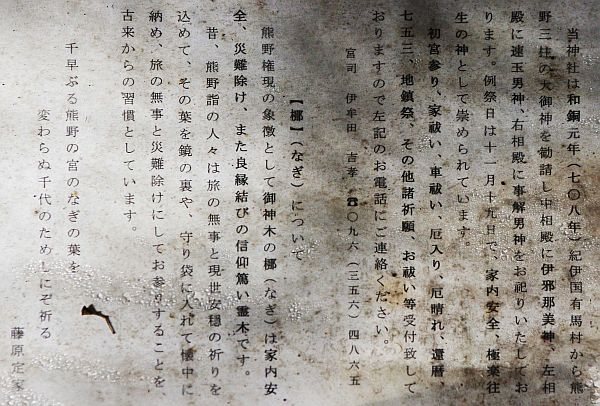 当神社は和銅元年(七〇八年)紀伊国有馬村から熊
野三柱の大御神を勧請し中相殿に伊邪那美神、左相
殿に速玉男神、右相殿に事解男神をお祀りいたしてお
ります。例祭日は十一月十九日で、家内安全、極楽往
生の神として崇められています。
初宮参り、家祓い、車祓い、厄入り、厄晴れ、還暦、
七五三、地鎮祭、その他諸祈願、お祓い等受付致して
おりますので左記のお電話にご連絡ください。
宮司 伊牟田 吉孝 ☎〇九六(三五六)四八六五
【梛】(なぎ)について
熊野権現の象徴として御神木の梛(なぎ)は家内安
全、災難除け、また良縁結びの信仰篤い霊木です。
昔、熊野詣の人々は旅の無事と現世安穏の祈りを
込めて、その葉を鏡の裏や、守り袋に入れて懐中に
納め、旅の無事と災難除けにしてお参りすることを
古来からの習慣としています。
千早ぶる熊野の宮のなぎの葉を
変わらぬ千代のためしにぞ祈る
藤原定家